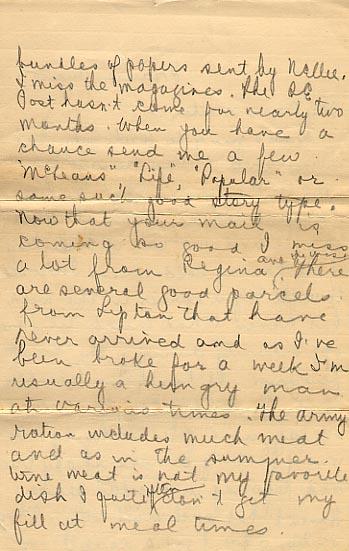 bundles of papers sent by Nellie.
I miss the magazines. The S.E.
Post hasn't come for nearly two
months. When you have a
chance send me a few
"McLeans" "Life," "Popular" or
some such good story type.
Now that your mail is
coming so good I miss
a lot from Regina and there
are several good parcels
from Lipton that have
never arrived and as I've
been broke for a week I'm
usually a hungry man
at various times. The army
ration includes much meat
and as in the summer
time meat is not my favorite
dish I quite often don't get my
fill at meal times.